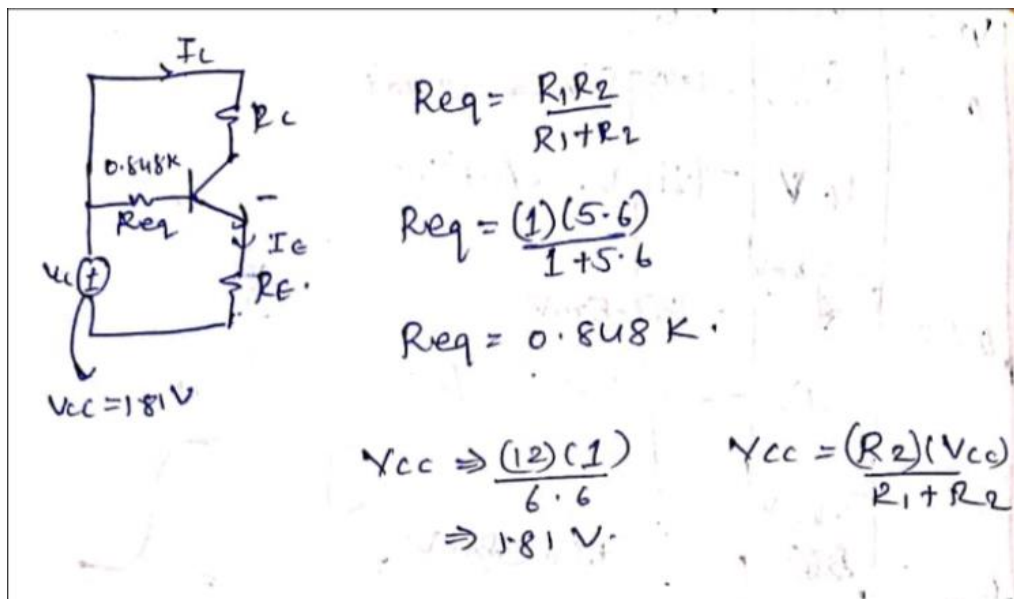 IC
RC
0.848K
Req
IE
RE.
VCC = 1.81 V
Req = R1R2 / R1+R2
Req = (1)(5.6) / 1+5.6
Req = 0.848 K.
VCC ⇒ (12)(1) / 6.6
⇒ 1.81 V.
VCC = (R2)(VCC) / R1+R2